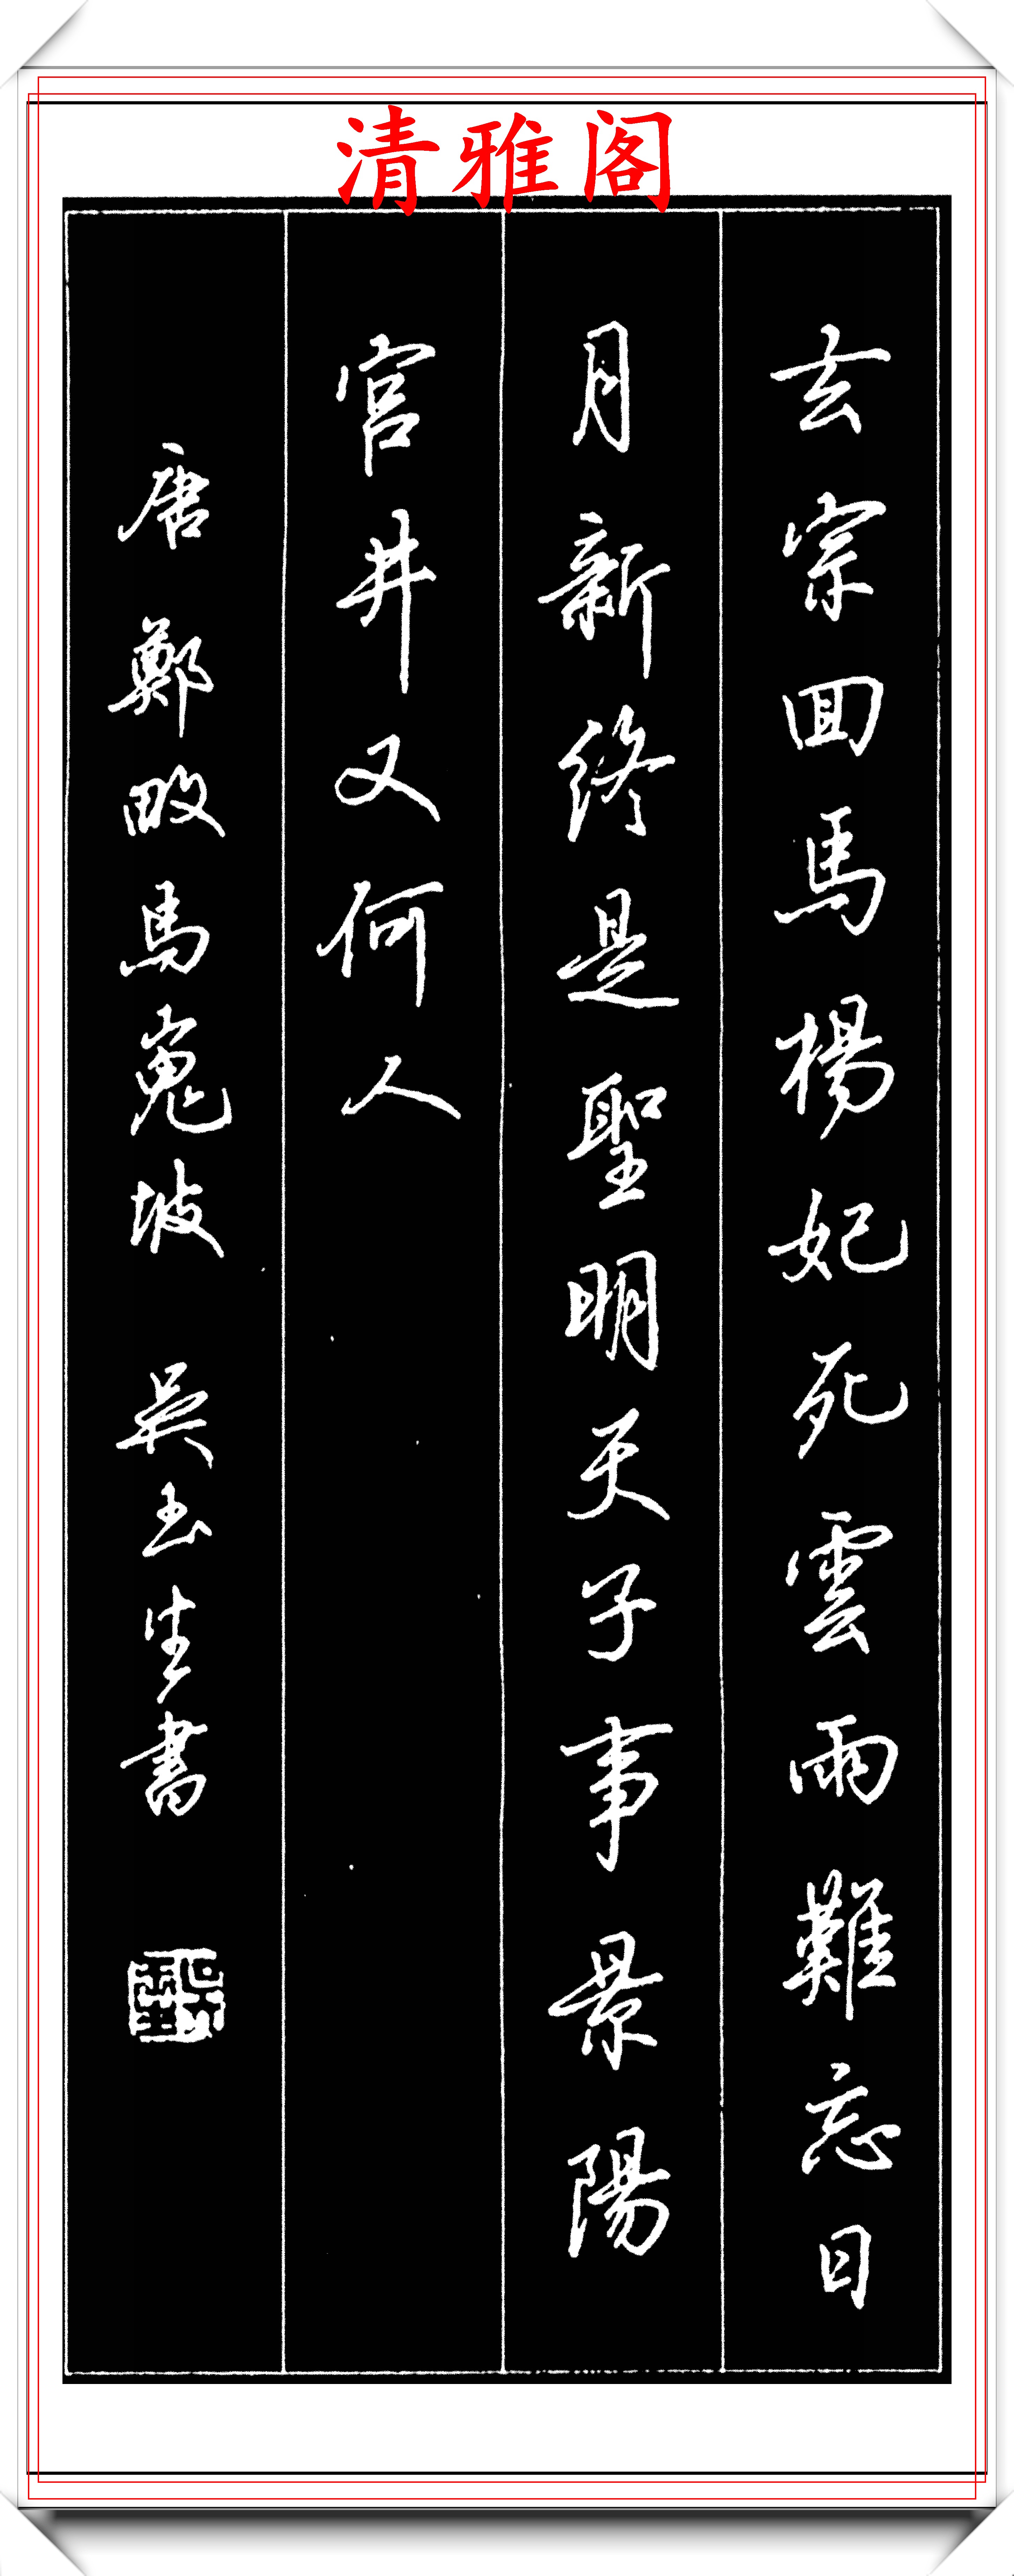 清雅阁
玄宗回馬楊妃死雲雨難忘日
月新終是聖明天子事景陽
宫井又何人
唐 鄭畋馬嵬坡 吳玉生書